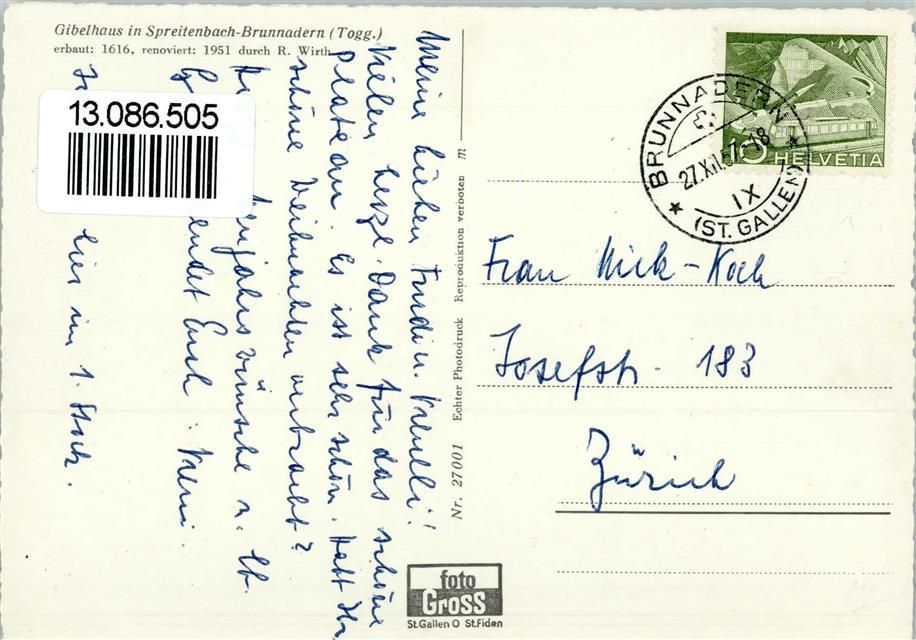 Gibelhaus in Spreitenbach-Brunnadern (Togg.)
erbaut: 1616, renoviert: 1951 durch R. Wirth
13.086.505
Meine Lieben Trudi u. Werner!
Vielen herzl. Dank für das schöne
Plateau. Es ist sehr schön. Habt Ihr
schöne Weihnachten verbracht?
Neujahrswünsche u. lb.
sendet Euch: Vreni.
hier im 1. Stock.
Nr. 27001 Echter Photodruck Reproduktion verboten m
foto
Gross
St.Gallen O St.Fiden
BRUNNADERN
27.XII.57-18
IX
(ST. GALLEN)
10 HELVETIA
Frau Mick-Koch
Josefstr. 183
Zürich